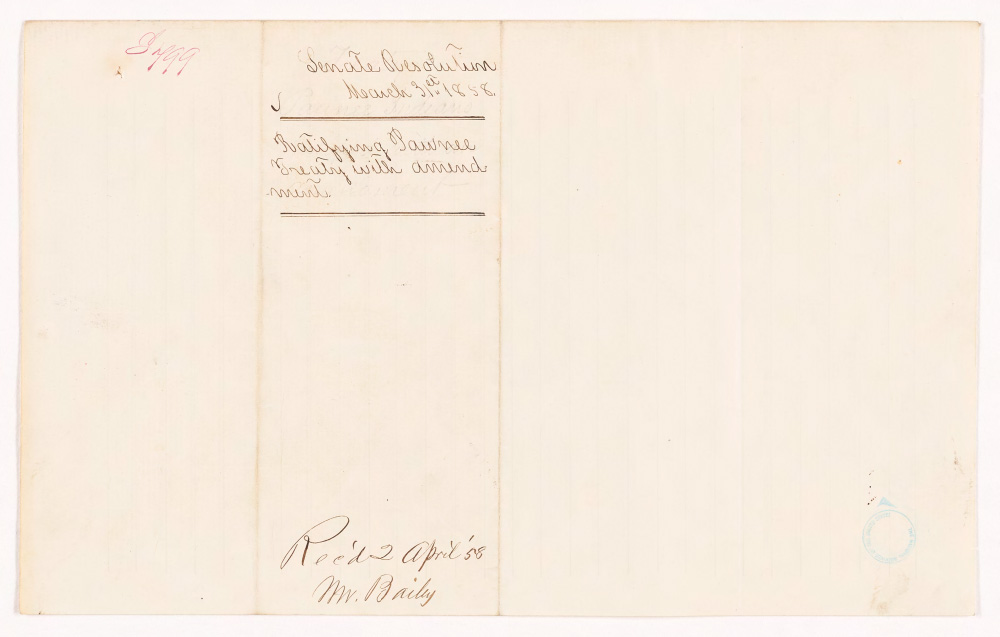 799
Senate Resolution
March 31st 1858.
Ratifying Pawnee
Treaty with amend
ment.
Rec'd 2 April '58
Mr. Baily